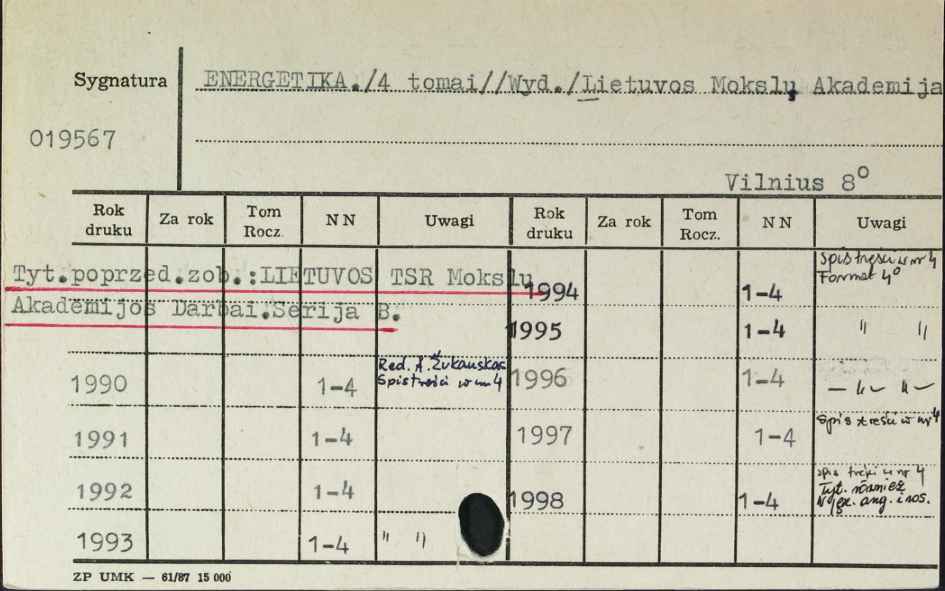 Sygnatura ENERGETIKA./4 tomai//Wyd./Lietuvos Mokslų Akademija
019567
Vilnius 8°
Rok druku Za rok Tom Rocz. N N Uwagi Rok druku Za rok Tom Rocz. N N Uwagi
Tyt.poprzed.zob.:LIETUVOS TSR Mokslų
Akademijos Darbai.Serija B.
1994 1-4 Spis treści w nr 4
Format 4°
1995 1-4 " "
1990 1-4 Red. A. Žukauskas
Spis treści w nr 4
1996 1-4 — " — " —
1991 1-4
1997 1-4 Spis treści w nr 4
1992 1-4
1998 1-4 spis treści w nr 4
Tyt. również
w jęz. ang. i ros.
1993 1-4 " "
ZP UMK — 61/87 15 000